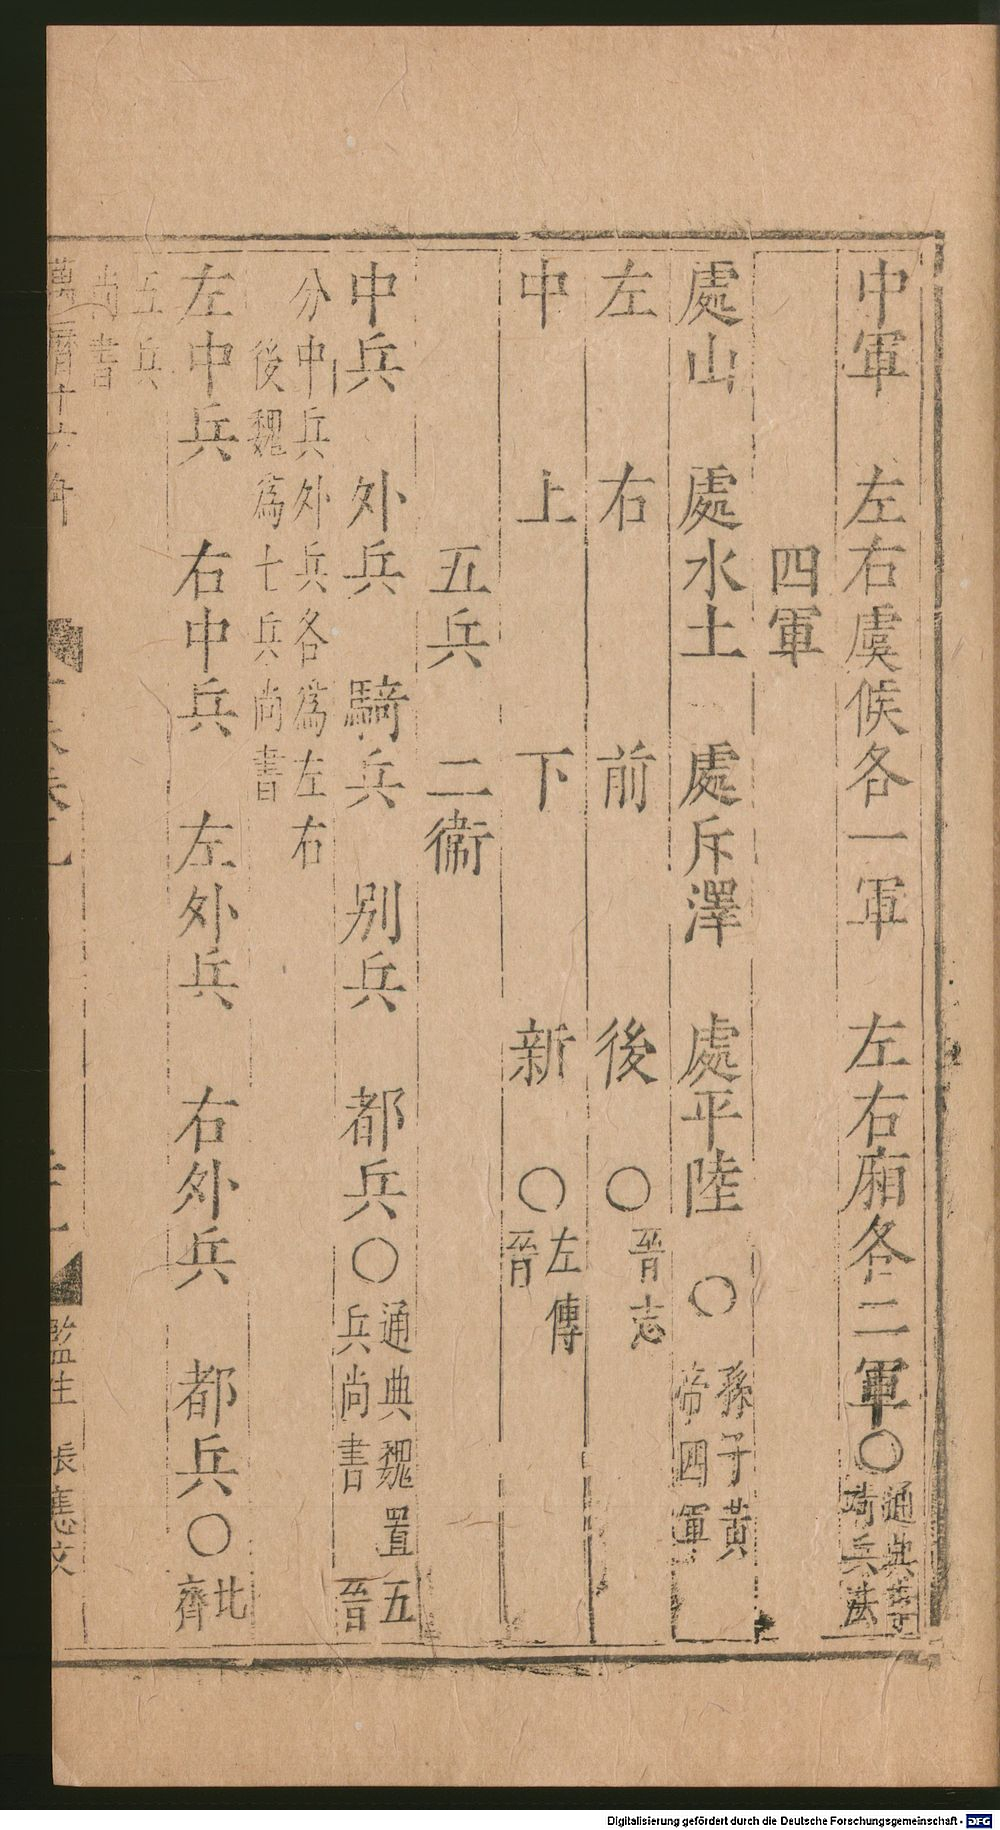 中軍　左右虞候各一軍　左右廂各二軍〇通典
兵法
四軍
處山　處水土　處斥澤　處平陸　〇孫子黃
帝四軍
左　右　前　後　〇晉志
中　上　下　新　〇左傳
晉
五兵　二衞
中兵　外兵　騎兵　别兵　都兵〇通典魏置五
兵尚書晉
分中兵外兵各爲左右
後魏爲七兵尚書
左中兵　右中兵　左外兵　右外兵　都兵〇北
齊
五兵
尚書
萬曆十六年
監生　張應文
Digitalisierung gefördert durch die Deutsche Forschungsgemeinschaft - DFG